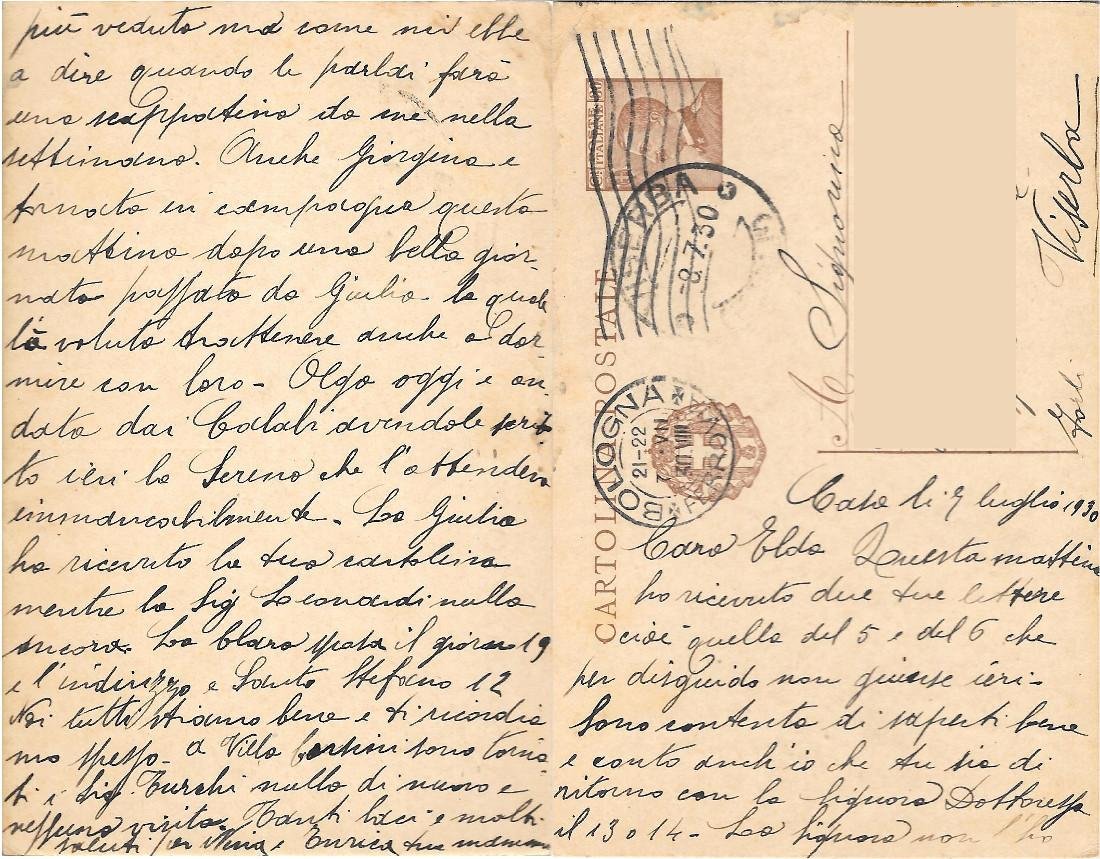 POSTE ITALIANE 30
CARTOLINA POSTALE
VISERBA
-8.7.30
BOLOGNA
21-22
7 VII
30 VIII
FERROVIA
A Signorina
Viserba
Forlì
Casa li 7 luglio 1930
Cara Elda Questa mattina
ho ricevuto due tue lettere
cioè quella del 5 e del 6 che
per disguido non giunse ieri-
Sono contenta di saperti bene
e conto anch'io che tu sia di
ritorno con la Signora Dottoressa
il 13 o 14 - La Signora non l'ho
più veduta ma come mi ebbe
a dire quando le parlai farà
una scappatina da me nella
settimana. Anche Giorgina e
tornata in campagna questa
mattina dopo una bella gior-
nata passata da Giulia la quale
l'à voluta trattenere anche a dor-
mire con loro - Olga oggi e an
data dai Calabi avendole scrit
to ieri la Serena che l'attendeva
immancabilmente - La Giulia
ha ricevuto la tua cartolina
mentre la Sig Leonardi nulla
ancora. La Clara sposa il giorno 19
e l'indirizzo e Santo Stefano 12
Noi tutti stiamo bene e ti ricordia
mo spesso - a Villa sono torna
ti i Sig Turchi nulla di nuovo e
nessuna visita. Tanti baci e molti
saluti da Nina e Enrica tua mamma